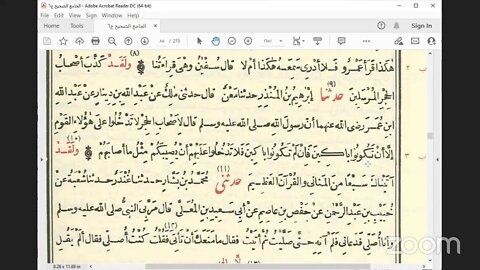 الجامع الصحيح ج٦ - Adobe Acrobat Reader DC (64-bit)
Home Tools
Sign In
215
هكذا قرأ عمرو فلا أدرى سمعه هكذا أم لا قال سفين وهى قراءتنا ولقد كذب أصحاب
الحجر المرسلين حدثنا إبرهيم بن المنذر حدثنا معن قال حدثنى ملك عن عبد الله بن دينار عن عبد الله
ابن عمر رضى الله عنهما أن رسول الله صلى الله عليه وسلم قال لأصحاب الحجر لا تدخلوا على هؤلاء القوم
إلا أن تكونوا باكين فإن لم تكونوا باكين فلا تدخلوا عليهم أن يصيبكم مثل ما أصابهم ولقد
آتيناك سبعا من المثانى والقرآن العظيم حدثنى محمد بن بشار حدثنا غندر حدثنا شعبة عن
خبيب بن عبد الرحمن عن حفص بن عاصم عن أبى سعيد بن المعلى قال مر بى النبى صلى الله عليه وسلم
وأنا أصلى فدعانى فلم آته حتى صليت ثم أتيت فقال ما منعك أن تأتى فقلت كنت أصلى فقال ألم يقل
8.26 x 11.69 in
zoom